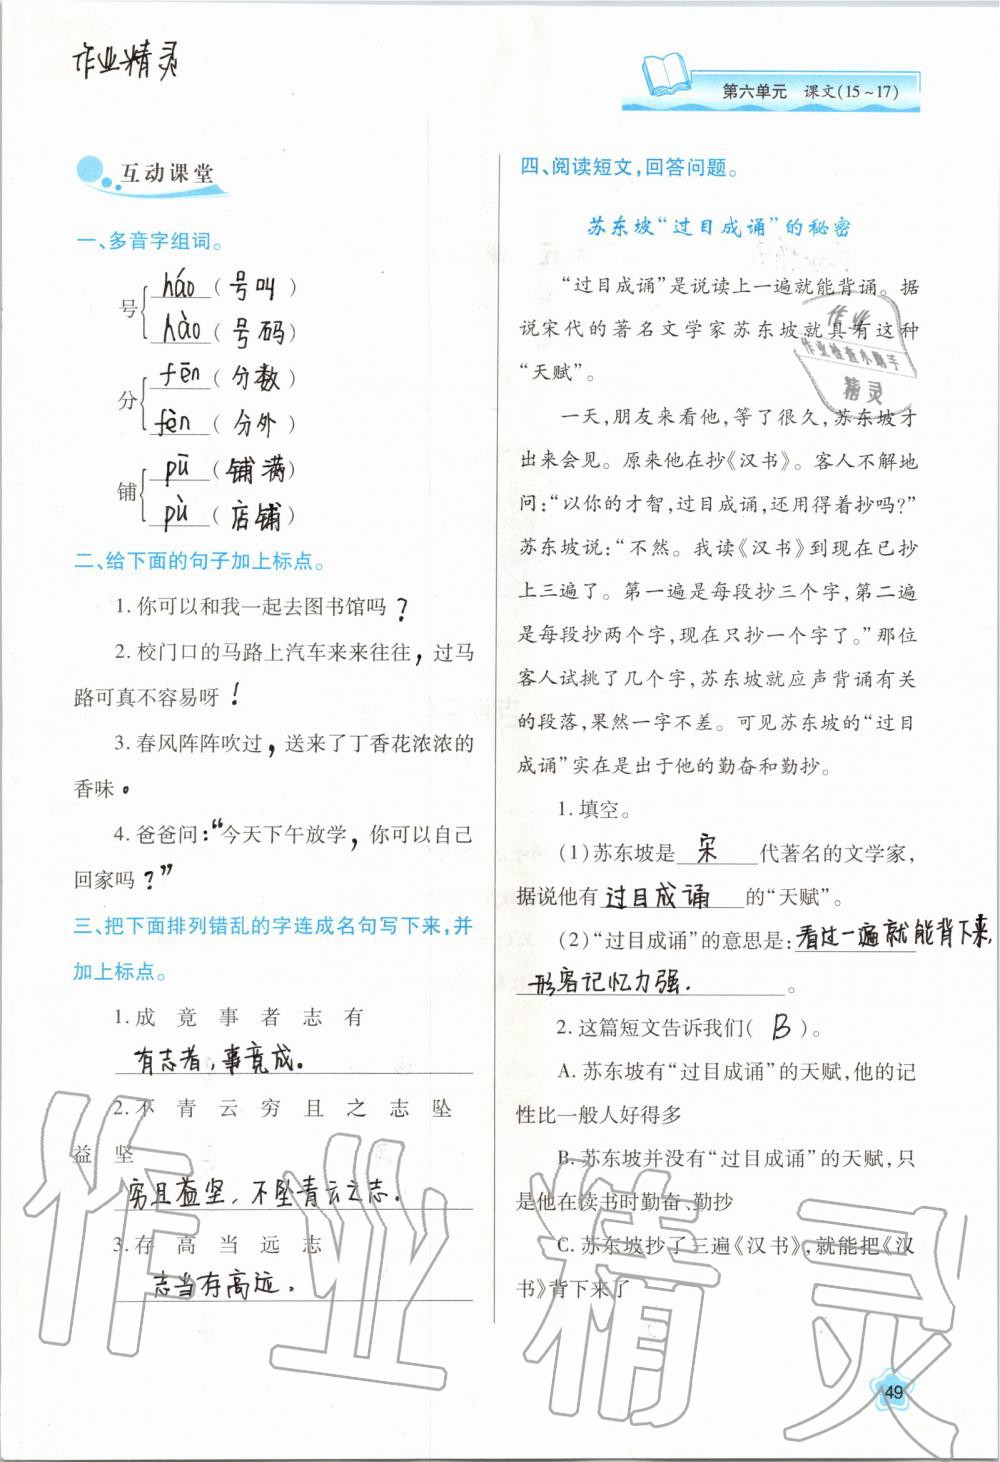 作业精灵
第六单元 课文(15～17)
互动课堂
一、多音字组词。
号 háo (号叫)
hào (号码)
分 fēn (分数)
fèn (分外)
铺 pū (铺满)
pù (店铺)
二、给下面的句子加上标点。
1. 你可以和我一起去图书馆吗？
2. 校门口的马路上汽车来来往往，过马
路可真不容易呀！
3. 春风阵阵吹过，送来了丁香花浓浓的
香味。
4. 爸爸问：“今天下午放学，你可以自己
回家吗？”
三、把下面排列错乱的字连成名句写下来，并
加上标点。
1. 成 竟 事 者 志 有
有志者，事竟成。
2. 不 青 云 穷 且 之 志 坠
益 坚
穷且益坚，不坠青云之志。
3. 存 高 当 远 志
志当存高远。
四、阅读短文，回答问题。
苏东坡“过目成诵”的秘密
“过目成诵”是说读上一遍就能背诵。据
说宋代的著名文学家苏东坡就具有这种
“天赋”。
一天，朋友来看他，等了很久，苏东坡才
出来会见。原来他在抄《汉书》。客人不解地
问：“以你的才智，过目成诵，还用得着抄吗？”
苏东坡说：“不然。我读《汉书》到现在已抄
上三遍了。第一遍是每段抄三个字，第二遍
是每段抄两个字，现在只抄一个字了。”那位
客人试挑了几个字，苏东坡就应声背诵有关
的段落，果然一字不差。可见苏东坡的“过目
成诵”实在是出于他的勤奋和勤抄。
1. 填空。
(1)苏东坡是 宋 代著名的文学家，
据说他有 过目成诵 的“天赋”。
(2)“过目成诵”的意思是：看过一遍就能背下来，
形容记忆力强．。
2. 这篇短文告诉我们( B )。
A. 苏东坡有“过目成诵”的天赋，他的记
性比一般人好得多
B. 苏东坡并没有“过目成诵”的天赋，只
是他在读书时勤奋、勤抄
C. 苏东坡抄了三遍《汉书》，就能把《汉
书》背下来了
作业
作业检查小助手
精灵
作业精灵
49